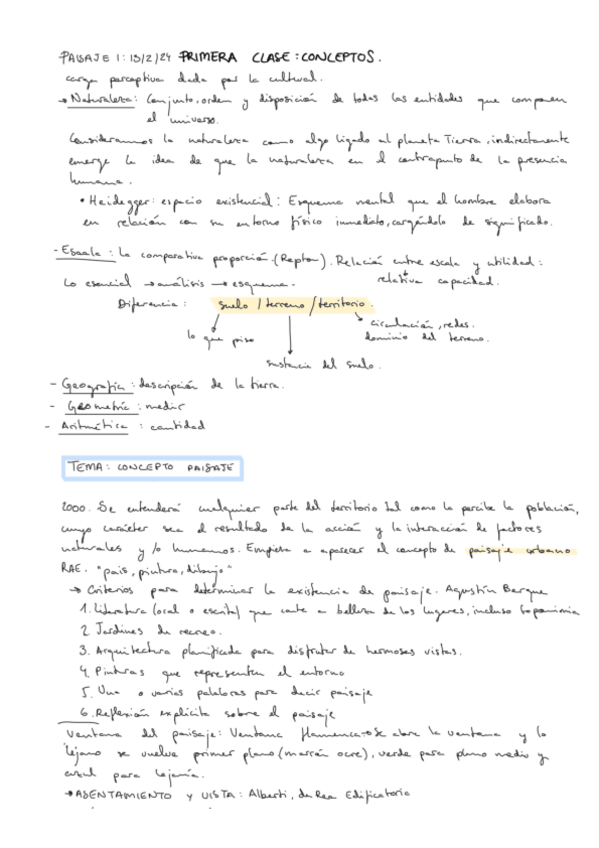 PAISAJE 1: 13/2/24 PRIMERA CLASE: CONCEPTOS.
carga perceptiva dada por la cultural.
→ Naturaleza: Conjunto, orden y disposición de todas las entidades que componen
el universo.
Consideramos la naturaleza como algo ligado al planeta Tierra, indirectamente
emerge la idea de que la naturaleza en el contrapunto de la presencia
humana.
• Heidegger: espacio existencial: Esquema mental que el hombre elabora
en relación con su entorno físico inmediato, cargándolo de significado.
- Escala: la comparativa proporción. (Repton). Relación entre escala y utilidad:
Lo esencial → análisis → esquema. relativa capacidad.
Diferencia: suelo / terreno / territorio.
lo que piso
circulación, redes.
dominio del terreno.
sustancia del suelo.
- Geografía: descripción de la tierra.
- Geometría: medir
- Aritmética: cantidad
TEMA: CONCEPTO PAISAJE
2000. Se entenderá cualquier parte del territorio tal como la percibe la población,
cuyo carácter sea el resultado de la acción y la interacción de factores
naturales y/o humanos. Empieza a aparecer el concepto de paisaje urbano
RAE. "país, pintura, dibujo"
→ Criterios para determinar la existencia de paisaje. Agustín Berque
1. Literatura (oral o escrita) que cante a belleza de los lugares, incluso toponimia
2. Jardines de recreo.
3. Arquitectura planificada para disfrutar de hermosas vistas.
4. Pinturas que representen el entorno
5. Una o varias palabras para decir paisaje
6. Reflexión explícita sobre el paisaje
Ventana del paisaje: Ventana flamenca → Se abre la ventana y lo
lejano se vuelve primer plano (marrón ocre), verde para plano medio y
azul para lejanía.
→ ASENTAMIENTO y VISTA: Alberti, de Rea Edificatoria